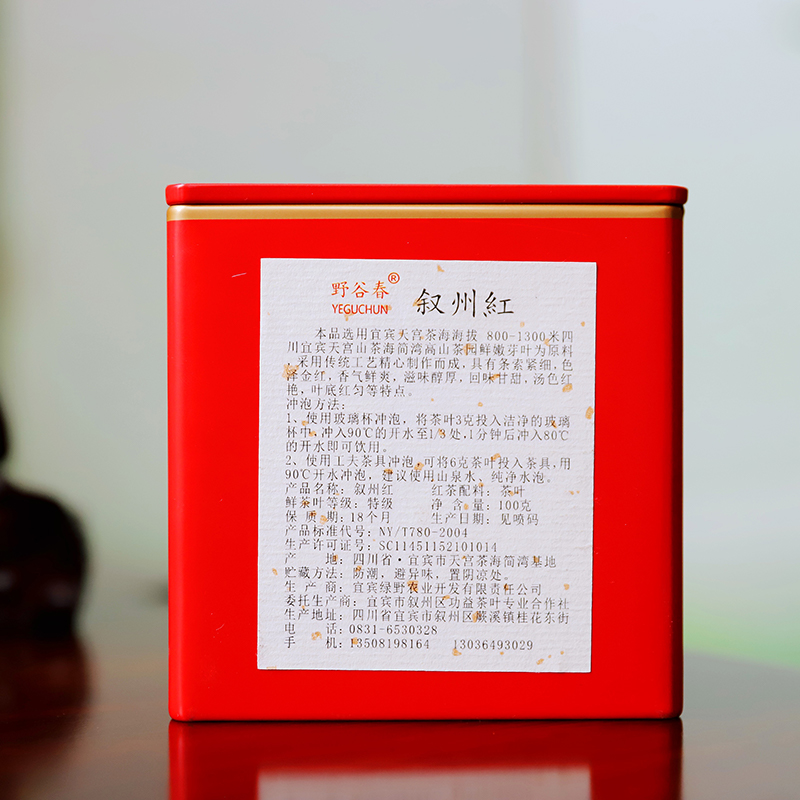 野谷春®
YEGUCHUN
叙州紅
本品选用宜宾天宫茶海海拔 800-1300米四
川宜宾天宫山茶海简湾高山茶园鲜嫩芽叶为原料
,采用传统工艺精心制作而成,具有条索紧细,色
泽金红,香气鲜爽,滋味醇厚,回味甘甜,汤色红
艳,叶底红匀等特点。
冲泡方法:
1、使用玻璃杯冲泡,将茶叶3克投入洁净的玻璃
杯中,冲入90℃的开水至1/3处,1分钟后冲入80℃
的开水即可饮用。
2、使用工夫茶具冲泡,可将6克茶叶投入茶具,用
90℃开水冲泡,建议使用山泉水、纯净水泡。
产品名称:叙州红 红茶配料:茶叶
鲜茶叶等级:特级 净 含 量:100克
保 质 期:18个月 生产日期:见喷码
产品标准代号:NY/T780-2004
生产许可证号:SC11451152101014
产 地:四川省·宜宾市天宫茶海简湾基地
贮藏方法:防潮,避异味,置阴凉处。
生 产 商:宜宾绿野农业开发有限责任公司
委托生产商:宜宾市叙州区功益茶叶专业合作社
生产地址:四川省宜宾市叙州区蕨溪镇桂花东街
电 话:0831-6530328
手 机:13508198164 13036493029